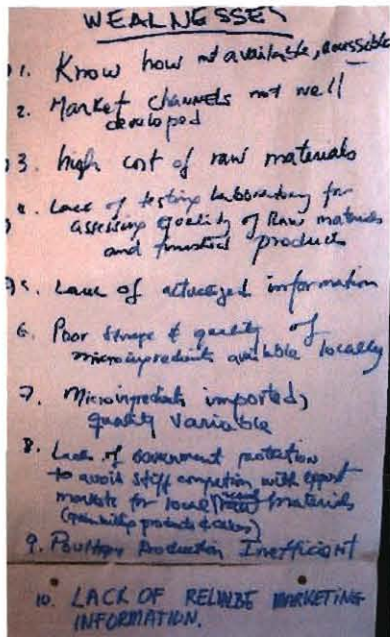 WEALNESSES
1. Know how not available, accessible
2. Market channels not well
developed
3. high cost of raw materials
4. Lack of testing laboratory for
assessing quality of Raw materials
and finished product
5. Lack of actualized information
6. Poor & quality of
microingredients available locally
7. Microingredients imported,
quality variable
8. Lack of Government protection
to avoid stiff competition with export
markets for local materials
(grain milling products & cakes)
9. Poultry Production Inefficient
10. LACK OF RELIABE MARKETING
INFORMATION.